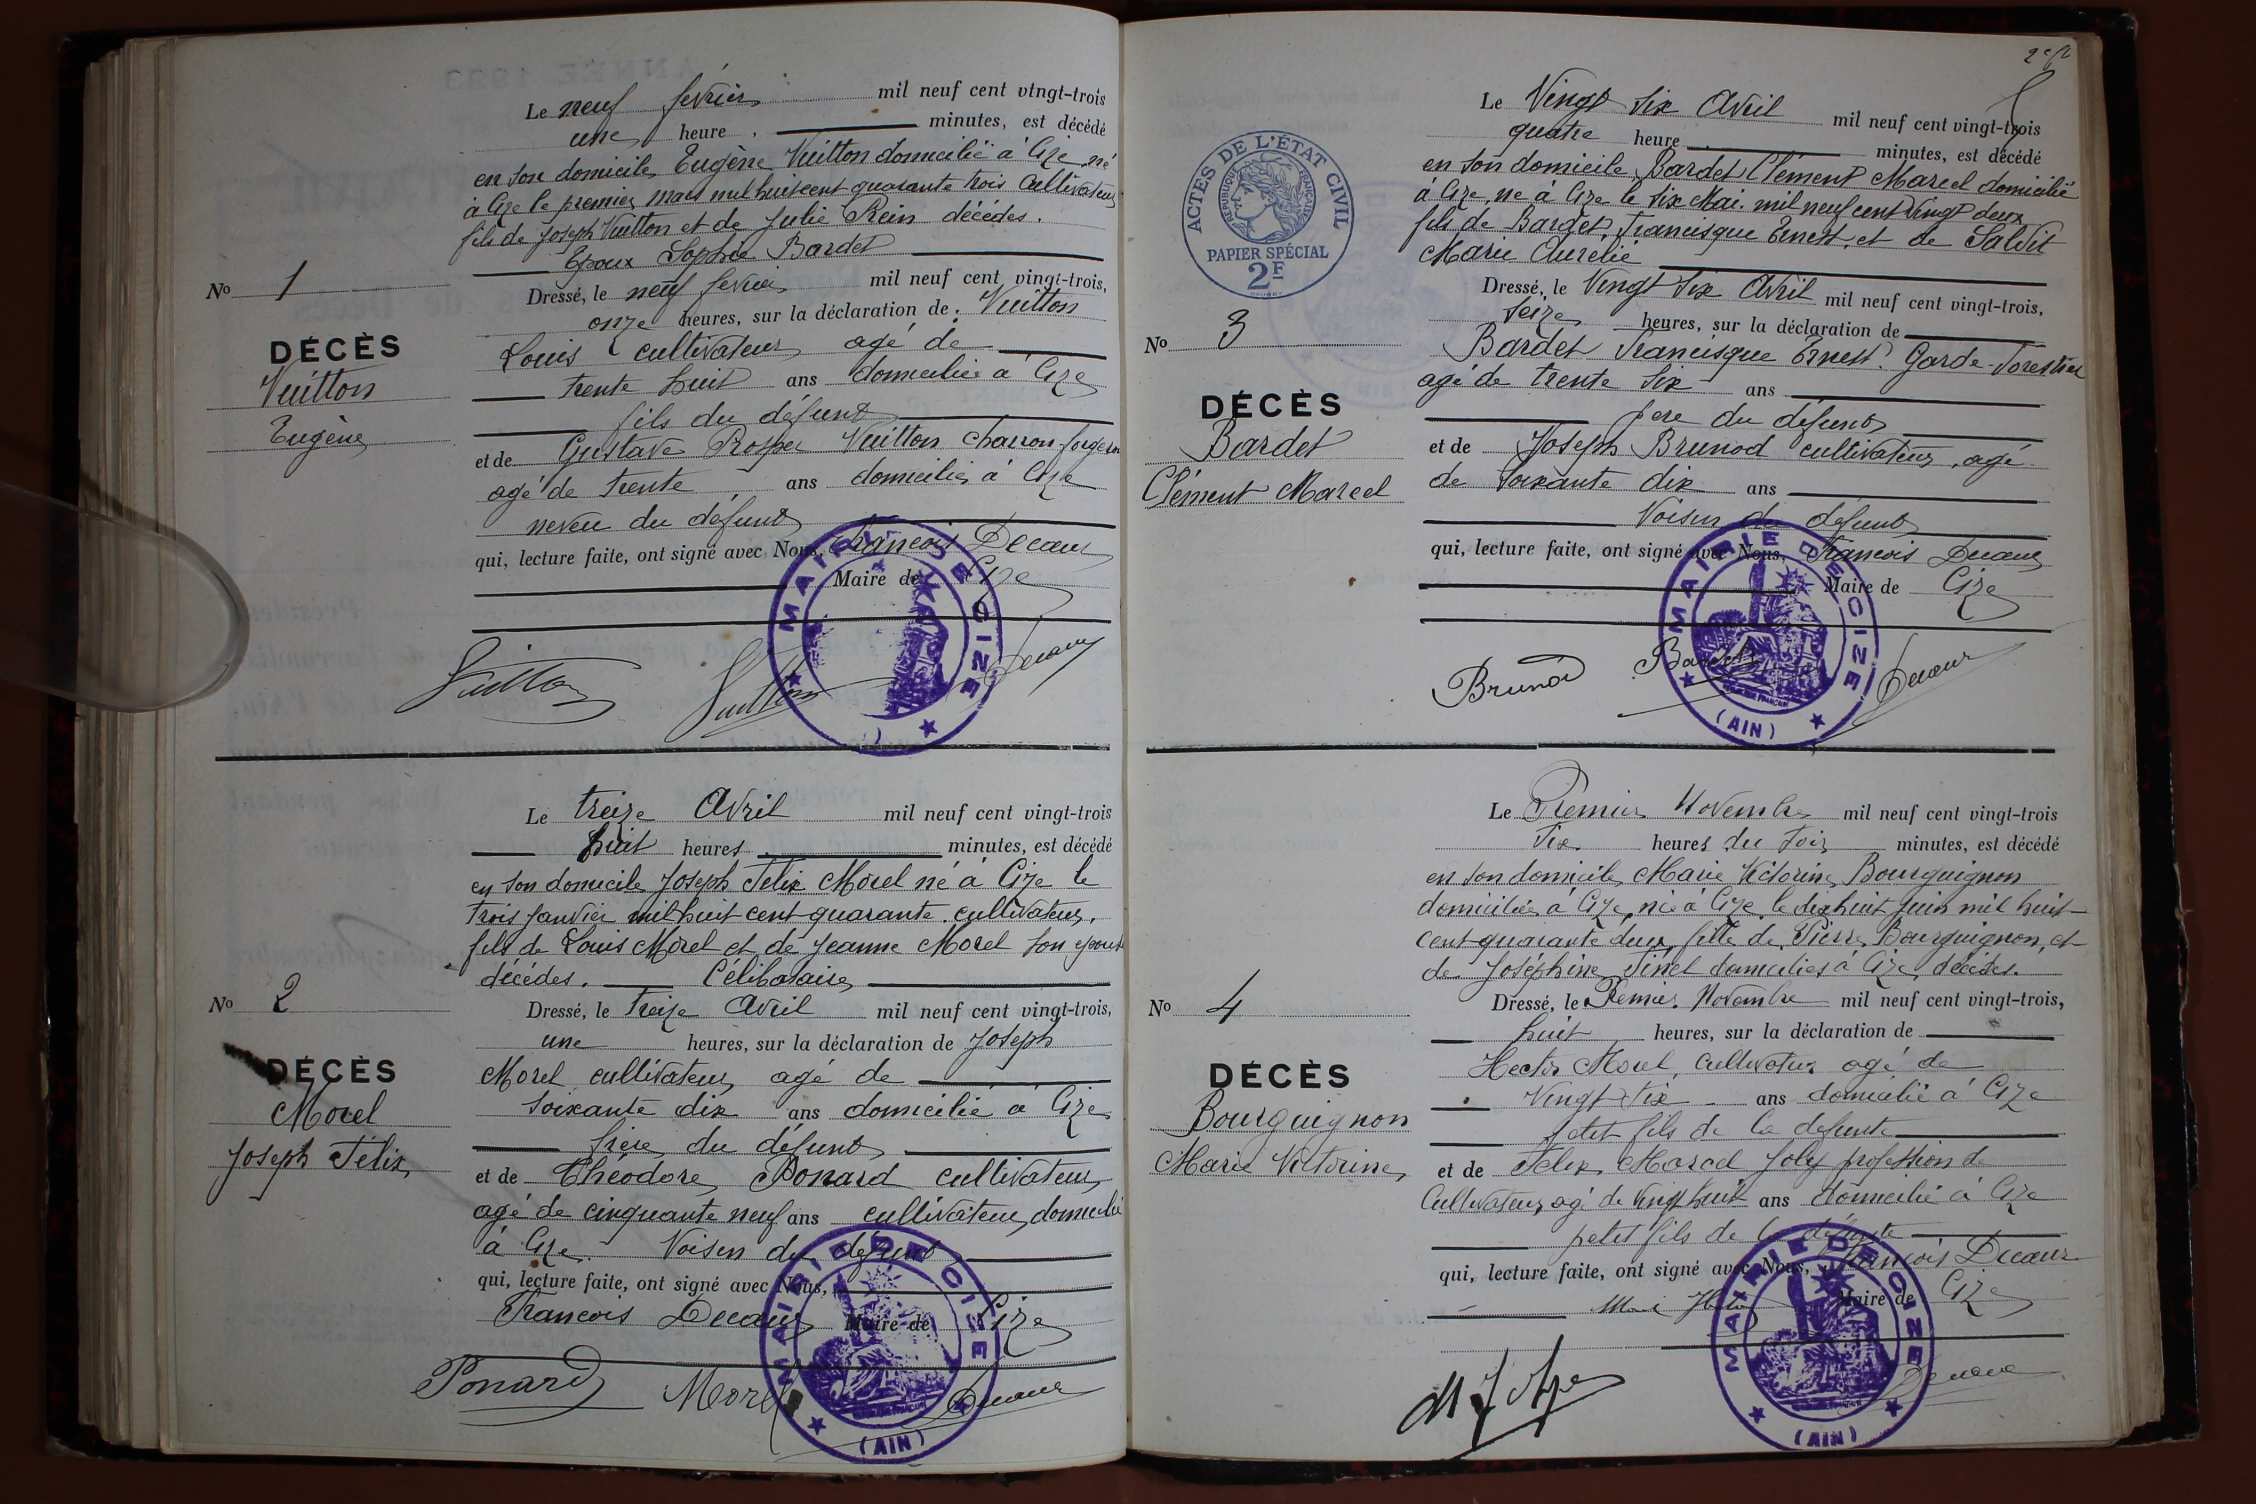 Le neuf février mil neuf cent vingt-trois
une heure minutes, est décédé
en son domicile Eugène Vuitton domicilié à Cize né
à Cize le premier mars mil huit cent quarante trois Cultivateur
fils de Joseph Vuitton et de Julie Rein décédés.
Epoux Sophie Bardet
No 1
Dressé, le neuf février mil neuf cent vingt-trois,
onze heures, sur la déclaration de Vuitton
DÉCÈS
Vuitton
Eugène
Louis cultivateur agé de
trente huit ans domicilié à Cize
fils du défunt
et de Gustave Prosper Vuitton charron-forgeron
agé de trente ans domicilié à Cize
neveu du défunt
qui, lecture faite, ont signé avec Nous, François Decœur
Maire de Cize
MAIRIE DE CIZE
Vuitton Vuitton Decœur
Le treize Avril mil neuf cent vingt-trois
huit heures minutes, est décédé
en son domicile Joseph Félix Morel né à Cize le
trois janvier mil huit cent quarante. cultivateur,
fils de Louis Morel et de Jeanne Morel son épouse
décédés. Célibataire
No 2
Dressé, le treize Avril mil neuf cent vingt-trois,
une heures, sur la déclaration de Joseph
DÉCÈS
Morel
Joseph Félix
Morel cultivateur agé de
soixante dix ans domicilié à Cize
frère du défunt
et de Théodore Ponard cultivateur,
agé de cinquante neuf ans cultivateur, domicilié
à Cize. Voisin du défunt
qui, lecture faite, ont signé avec Nous,
François Decœur Maire de Cize
MAIRIE DE CIZE
(AIN)
Ponard Morel Decœur
Le Vingt Six Avril mil neuf cent vingt-trois
quatre heure minutes, est décédé
en son domicile Bardet Clément Marcel domicilié
à Cize, né à Cize le six Mai mil neuf cent vingt deux
fils de Bardet, Francisque Ernest, et de Salvit
Marie Aurélie
ACTES DE L'ÉTAT CIVIL
RÉPUBLIQUE FRANÇAISE
PAPIER SPÉCIAL
2F
Dressé, le Vingt Six Avril mil neuf cent vingt-trois,
seize heures, sur la déclaration de
No 3
DÉCÈS
Bardet
Clément Marcel
Bardet Francisque Ernest. Garde-Forestier
agé de trente six ans
père du défunt
et de Joseph Brunod cultivateur, agé
de soixante dix ans
Voisin du défunt
qui, lecture faite, ont signé avec Nous, François Decœur
Maire de Cize
MAIRIE DE CIZE
(AIN)
Brunod Bardet Decœur
Le Premier Novembre mil neuf cent vingt-trois
six heures du soir minutes, est décédé
en son domicile Marie Victorine Bourguignon
domiciliée à Cize, née à Cize le dix huit juin mil huit
cent quarante deux, fille de Pierre Bourguignon, et
de Joséphine Tinel domiciliés à Cize, décédés.
No 4
Dressé, le Premier Novembre mil neuf cent vingt-trois,
huit heures, sur la déclaration de
DÉCÈS
Bourguignon
Marie Victorine
Hector Morel, Cultivateur agé de
Vingt Six ans domicilié à Cize
petit fils de la défunte
et de Félix Marcel Joly profession de
Cultivateur, agé de Vingt huit ans domicilié à Cize
petit fils de la défunte
qui, lecture faite, ont signé avec Nous, François Decœur
Maire de Cize
MAIRIE DE CIZE
(AIN)
Decœur